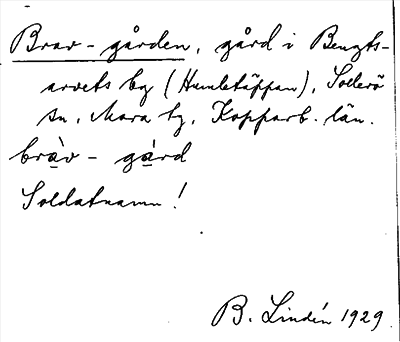 Brav-gården, gård i Bengts-
arvets by (Humletäppan), Sollerö
sn, Mora tg, Kopparb. län.
bràv - gá̱rd
Soldatnamn!
B. Lindén 1929